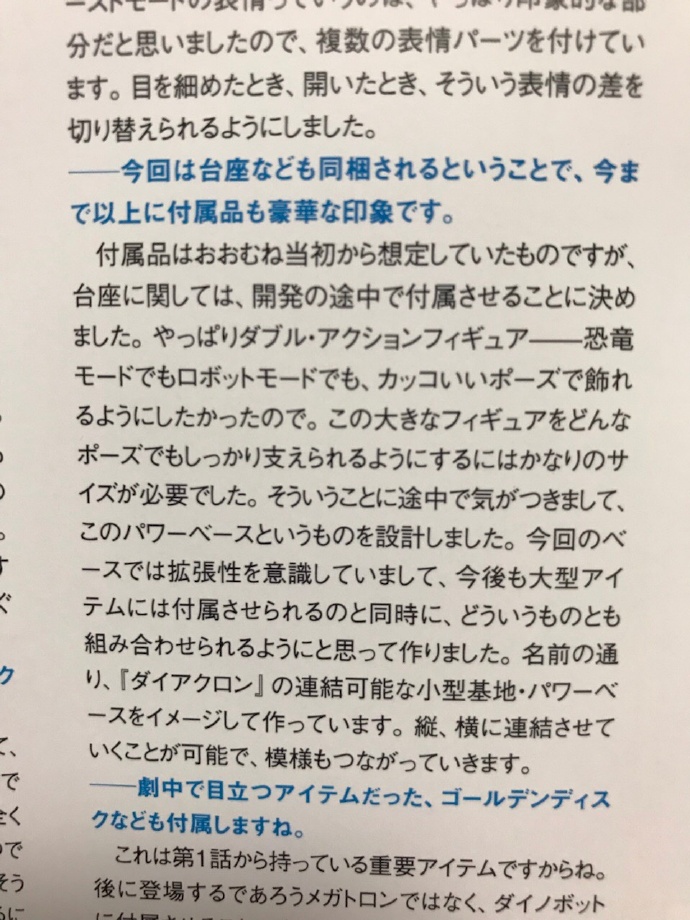 ーストモードの表情っていうのは、やっぱり印象的な部
分だと思いましたので、複数の表情パーツを付けてい
ます。目を細めたとき、開いたとき、そういう表情の差を
切り替えられるようにしました。
——今回は台座なども同梱されるということで、今ま
で以上に付属品も豪華な印象です。
　付属品はおおむね当初から想定していたものですが、
台座に関しては、開発の途中で付属させることに決め
ました。やっぱりダブル・アクションフィギュア——恐竜
モードでもロボットモードでも、カッコいいポーズで飾れ
るようにしたかったので。この大きなフィギュアをどんな
ポーズでもしっかり支えられるようにするにはかなりのサ
イズが必要でした。そういうことに途中で気がつきまして、
このパワーベースというものを設計しました。今回のベ
ースでは拡張性を意識していまして、今後も大型アイ
テムには付属させられるのと同時に、どういうものとも
組み合わせられるようにと思って作りました。名前の通
り、『ダイアクロン』の連結可能な小型基地・パワーベ
ースをイメージして作っています。縦、横に連結させて
いくことが可能で、模様もつながっていきます。
——劇中で目立つアイテムだった、ゴールデンディス
クなども付属しますね。
　これは第1話から持っている重要アイテムですからね。
後に登場するであろうメガトロンではなく、ダイノボット